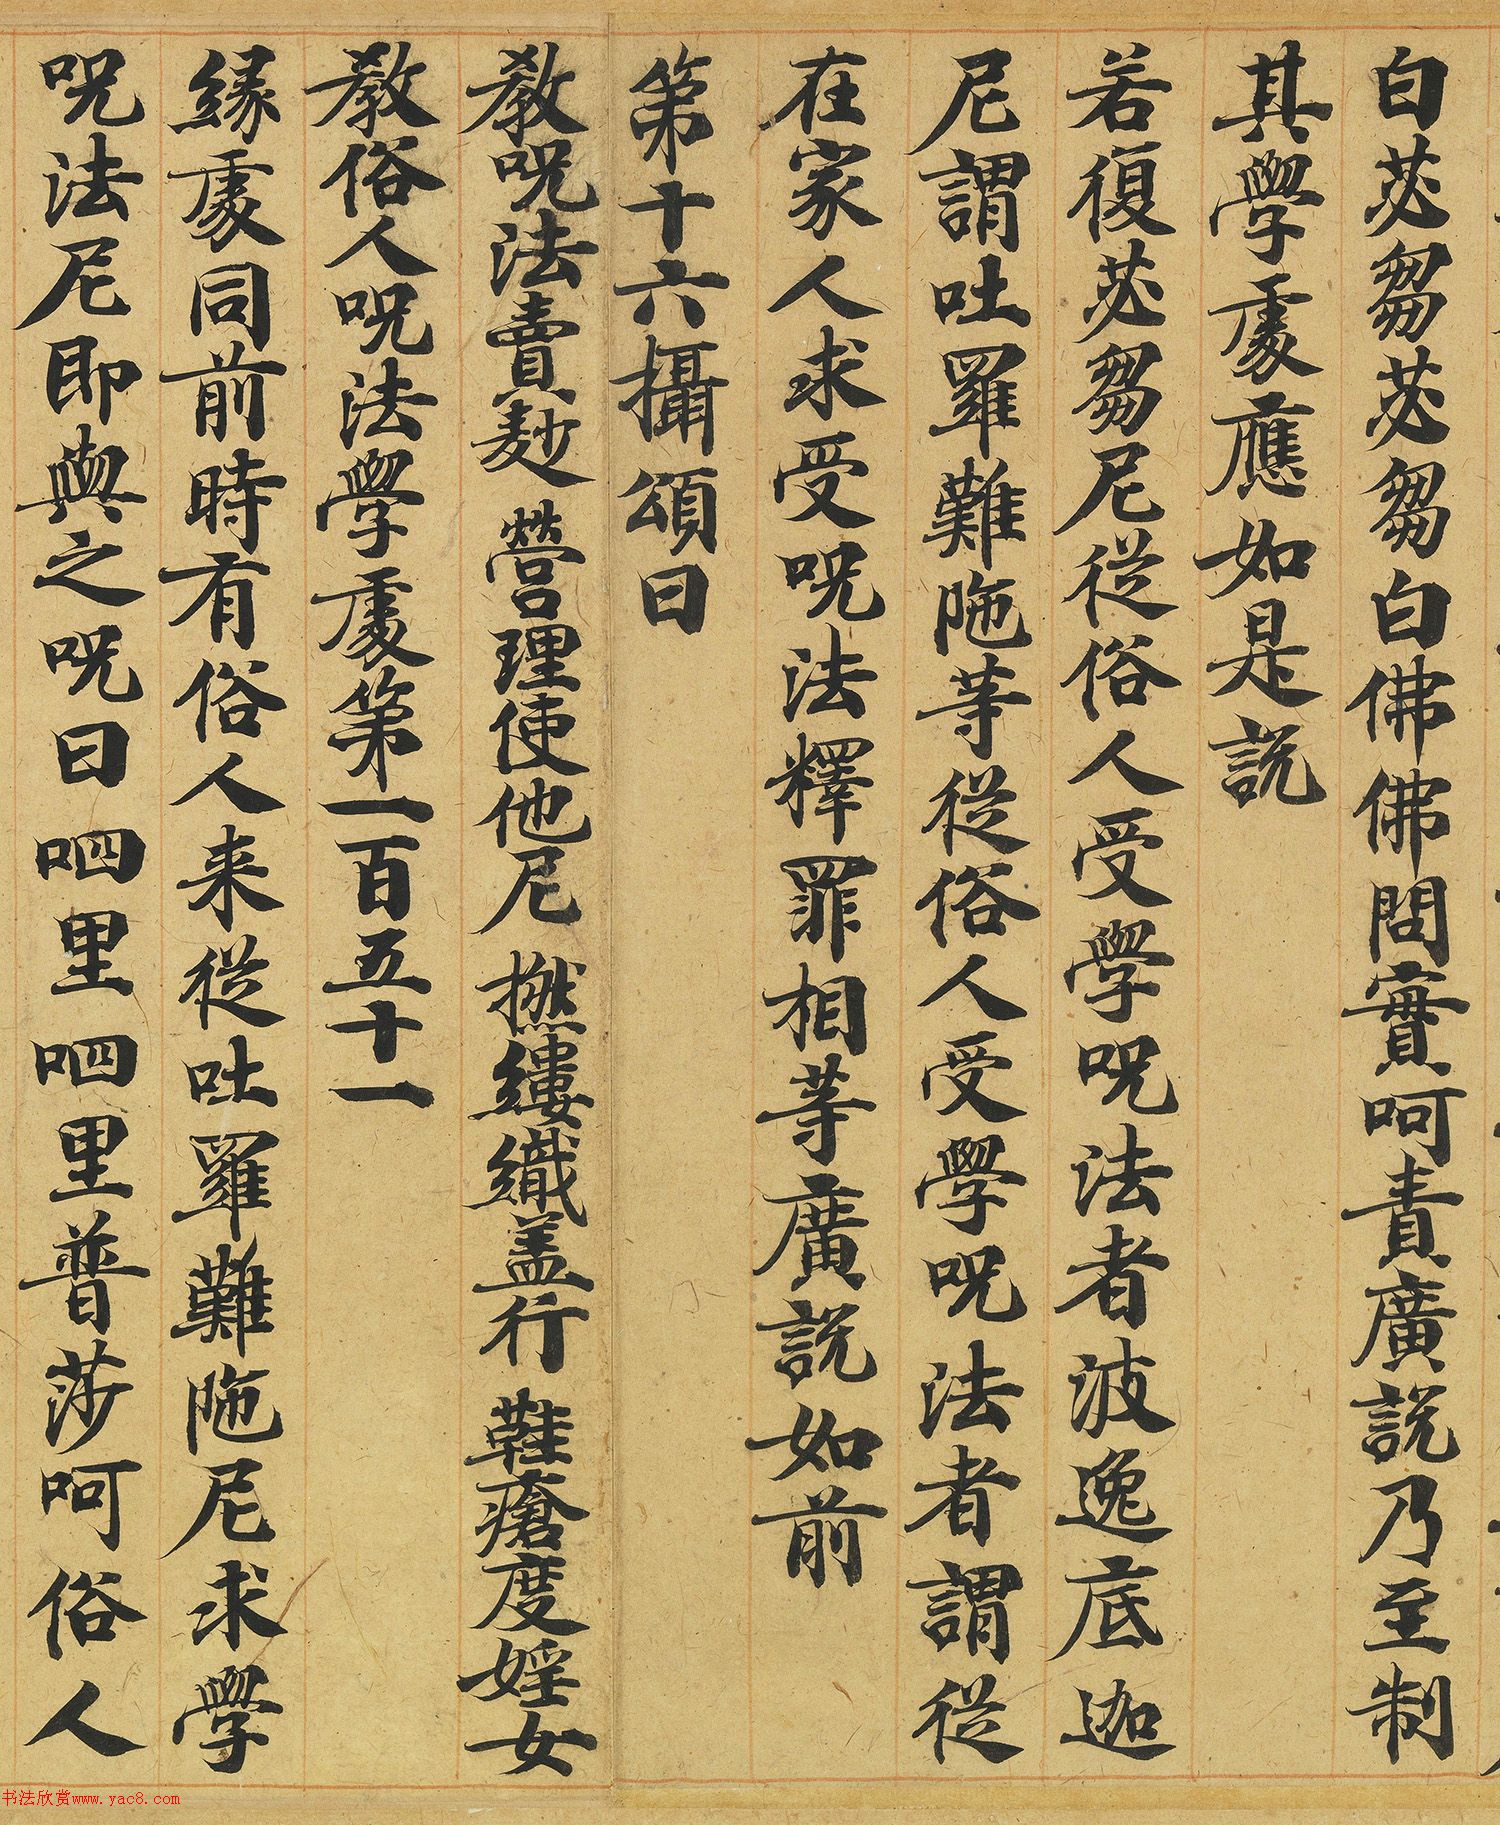 白苾芻苾芻白佛佛問實呵責廣說乃至制
其學處應如是說
若復苾芻尼從俗人受學呪法者波逸底迦
尼謂吐羅難陁等從俗人受學呪法者謂從
在家人求受呪法釋罪相等廣說如前
第十六攝頌曰
教呪法賣麨 營理使他尼 撚縷織盖行 鞋瘡度婬女
教俗人呪法學處第一百五十一
緣處同前時有俗人来從吐羅難陁尼求學
呪法尼即與之呪曰呬里呬里普莎呵俗人
书法欣赏www.yac8.com